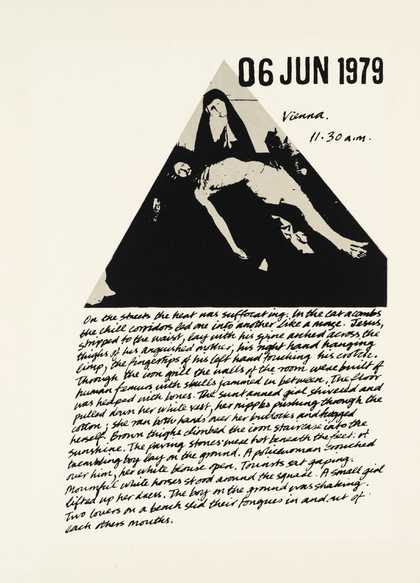 06 JUN 1979
Vienna.
11·30 a.m.
On the streets the heat was suffocating. In the catacombs
the chill corridors led one into another like a maze. Jesus,
stripped to the waist, lay with his spine arched across the
thighs of his anguished mother, his right hand hanging
limp, the fingertips of his left hand touching his crotch.
Through the iron grill the walls of the room were built of
human femurs with skulls jammed in between. The floor
was heaped with bones. The suntanned girl shivered and
pulled down her white vest, her nipples pushing through the
cotton; she ran both hands over her buttocks and hugged
herself. Brown thighs climbed the iron staircase into the
sunshine. The paving stones were hot beneath the feet. A
trembling boy lay on the ground. A policewoman crouched
over him, her white blouse open. Tourists sat gaping.
Mournful white horses stood around the square. A small girl
lifted up her dress. The boy on the ground was shaking.
Two lovers on a bench slid their tongues in and out of
each others mouths.